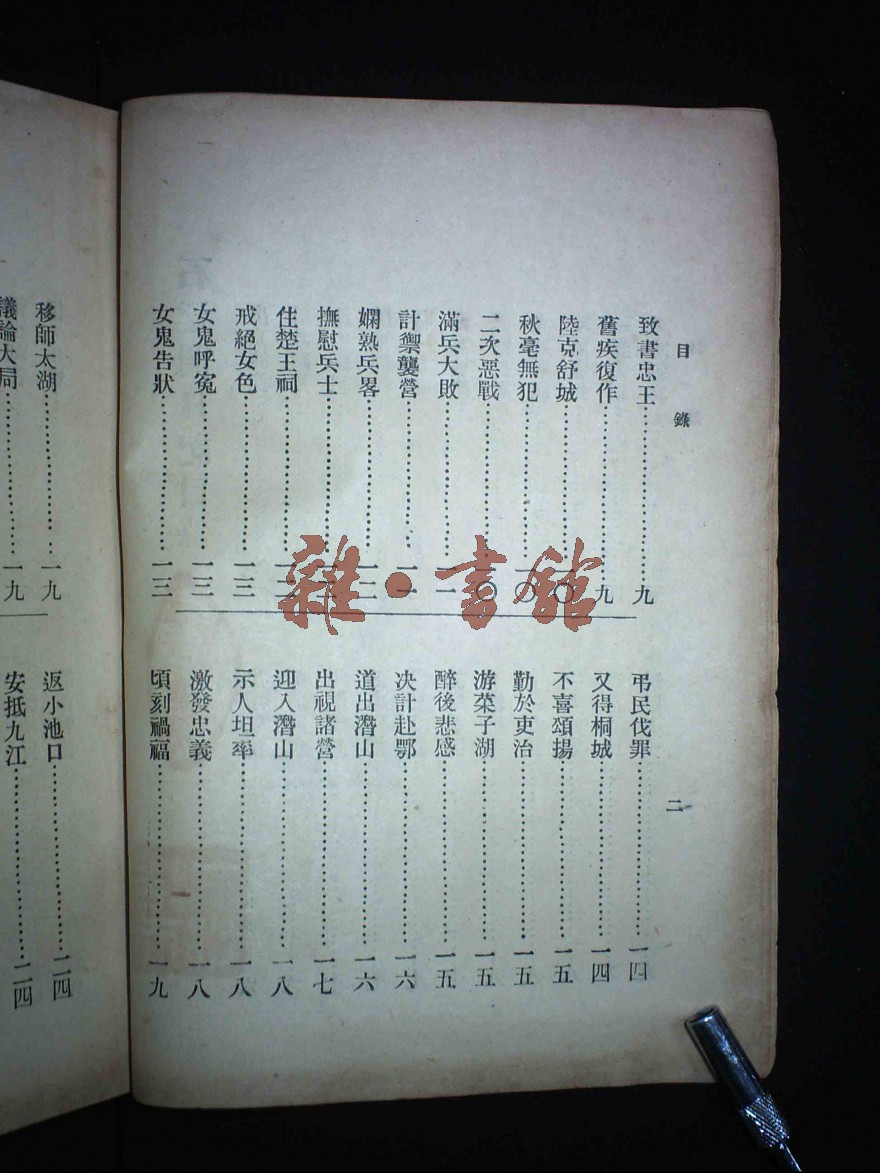 目錄
二
致書忠王……九
舊疾復作……九
陸克舒城……一〇
秋毫無犯……一〇
二次惡戰……一〇
滿兵大敗……一一
計禦襲營……一一
嫻熟兵畧……一二
撫慰兵士……
住楚王祠……
戒絕女色……一三
女鬼呼冤……一三
女鬼告狀……一三
弔民伐罪……一四
又得桐城……一四
不喜頌揚……一五
勤於吏治……一五
游菜子湖……一五
醉後悲感……一五
决計赴鄂……一六
道出潛山……一六
出視諸營……一七
迎入潛山……一八
示人坦率……一八
激發忠義……一八
頃刻禍福……一九
移師太湖……一九
議論大局……一九
返小池口……二四
安抵九江……二四
雜·書館